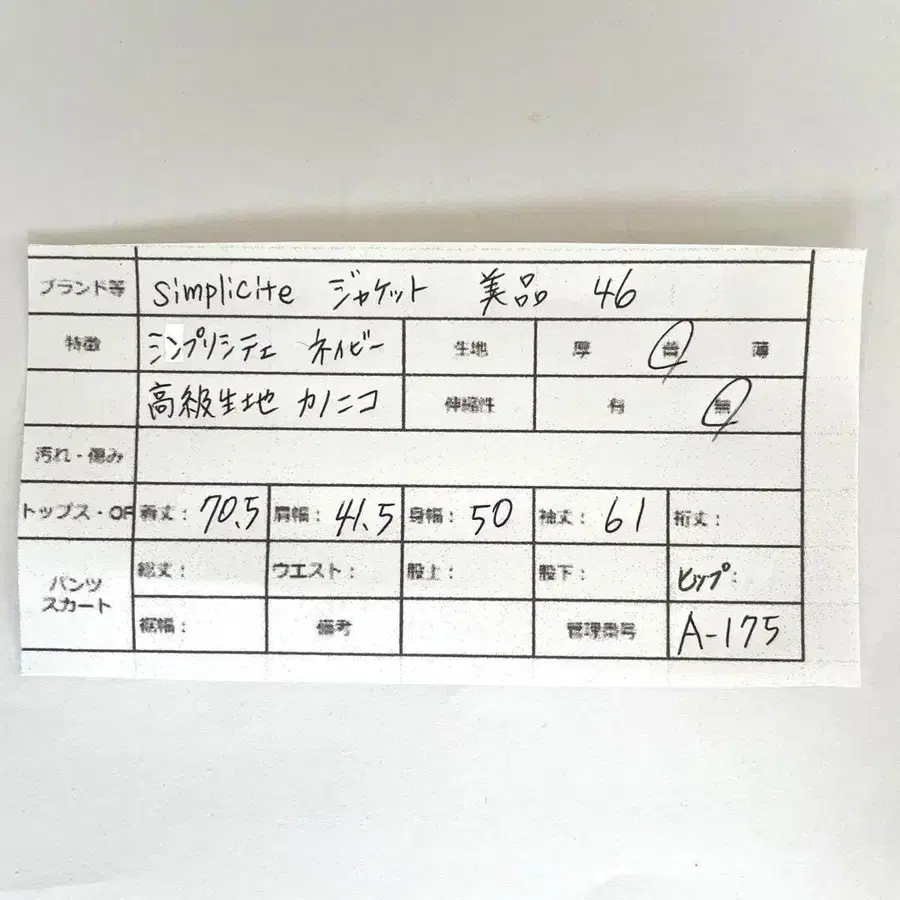 ブランド等 simplicite ジャケット 美品 46
特徴 シンプリシティ ネイビー 生地 厚 普 薄
高級生地 カノニコ 伸縮性 有 無
汚れ・傷み
トップス・OP 着丈: 70.5 肩幅: 41.5 身幅: 50 袖丈: 61 裄丈:
パンツ スカート 総丈: ウエスト: 股上: 股下: ヒップ:
裾幅: 備考 管理番号 A-175